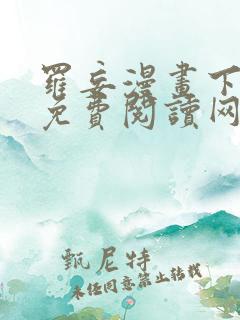 羅妄漫畫下
免費閱讀网
甄尼特
未经同意禁止转载